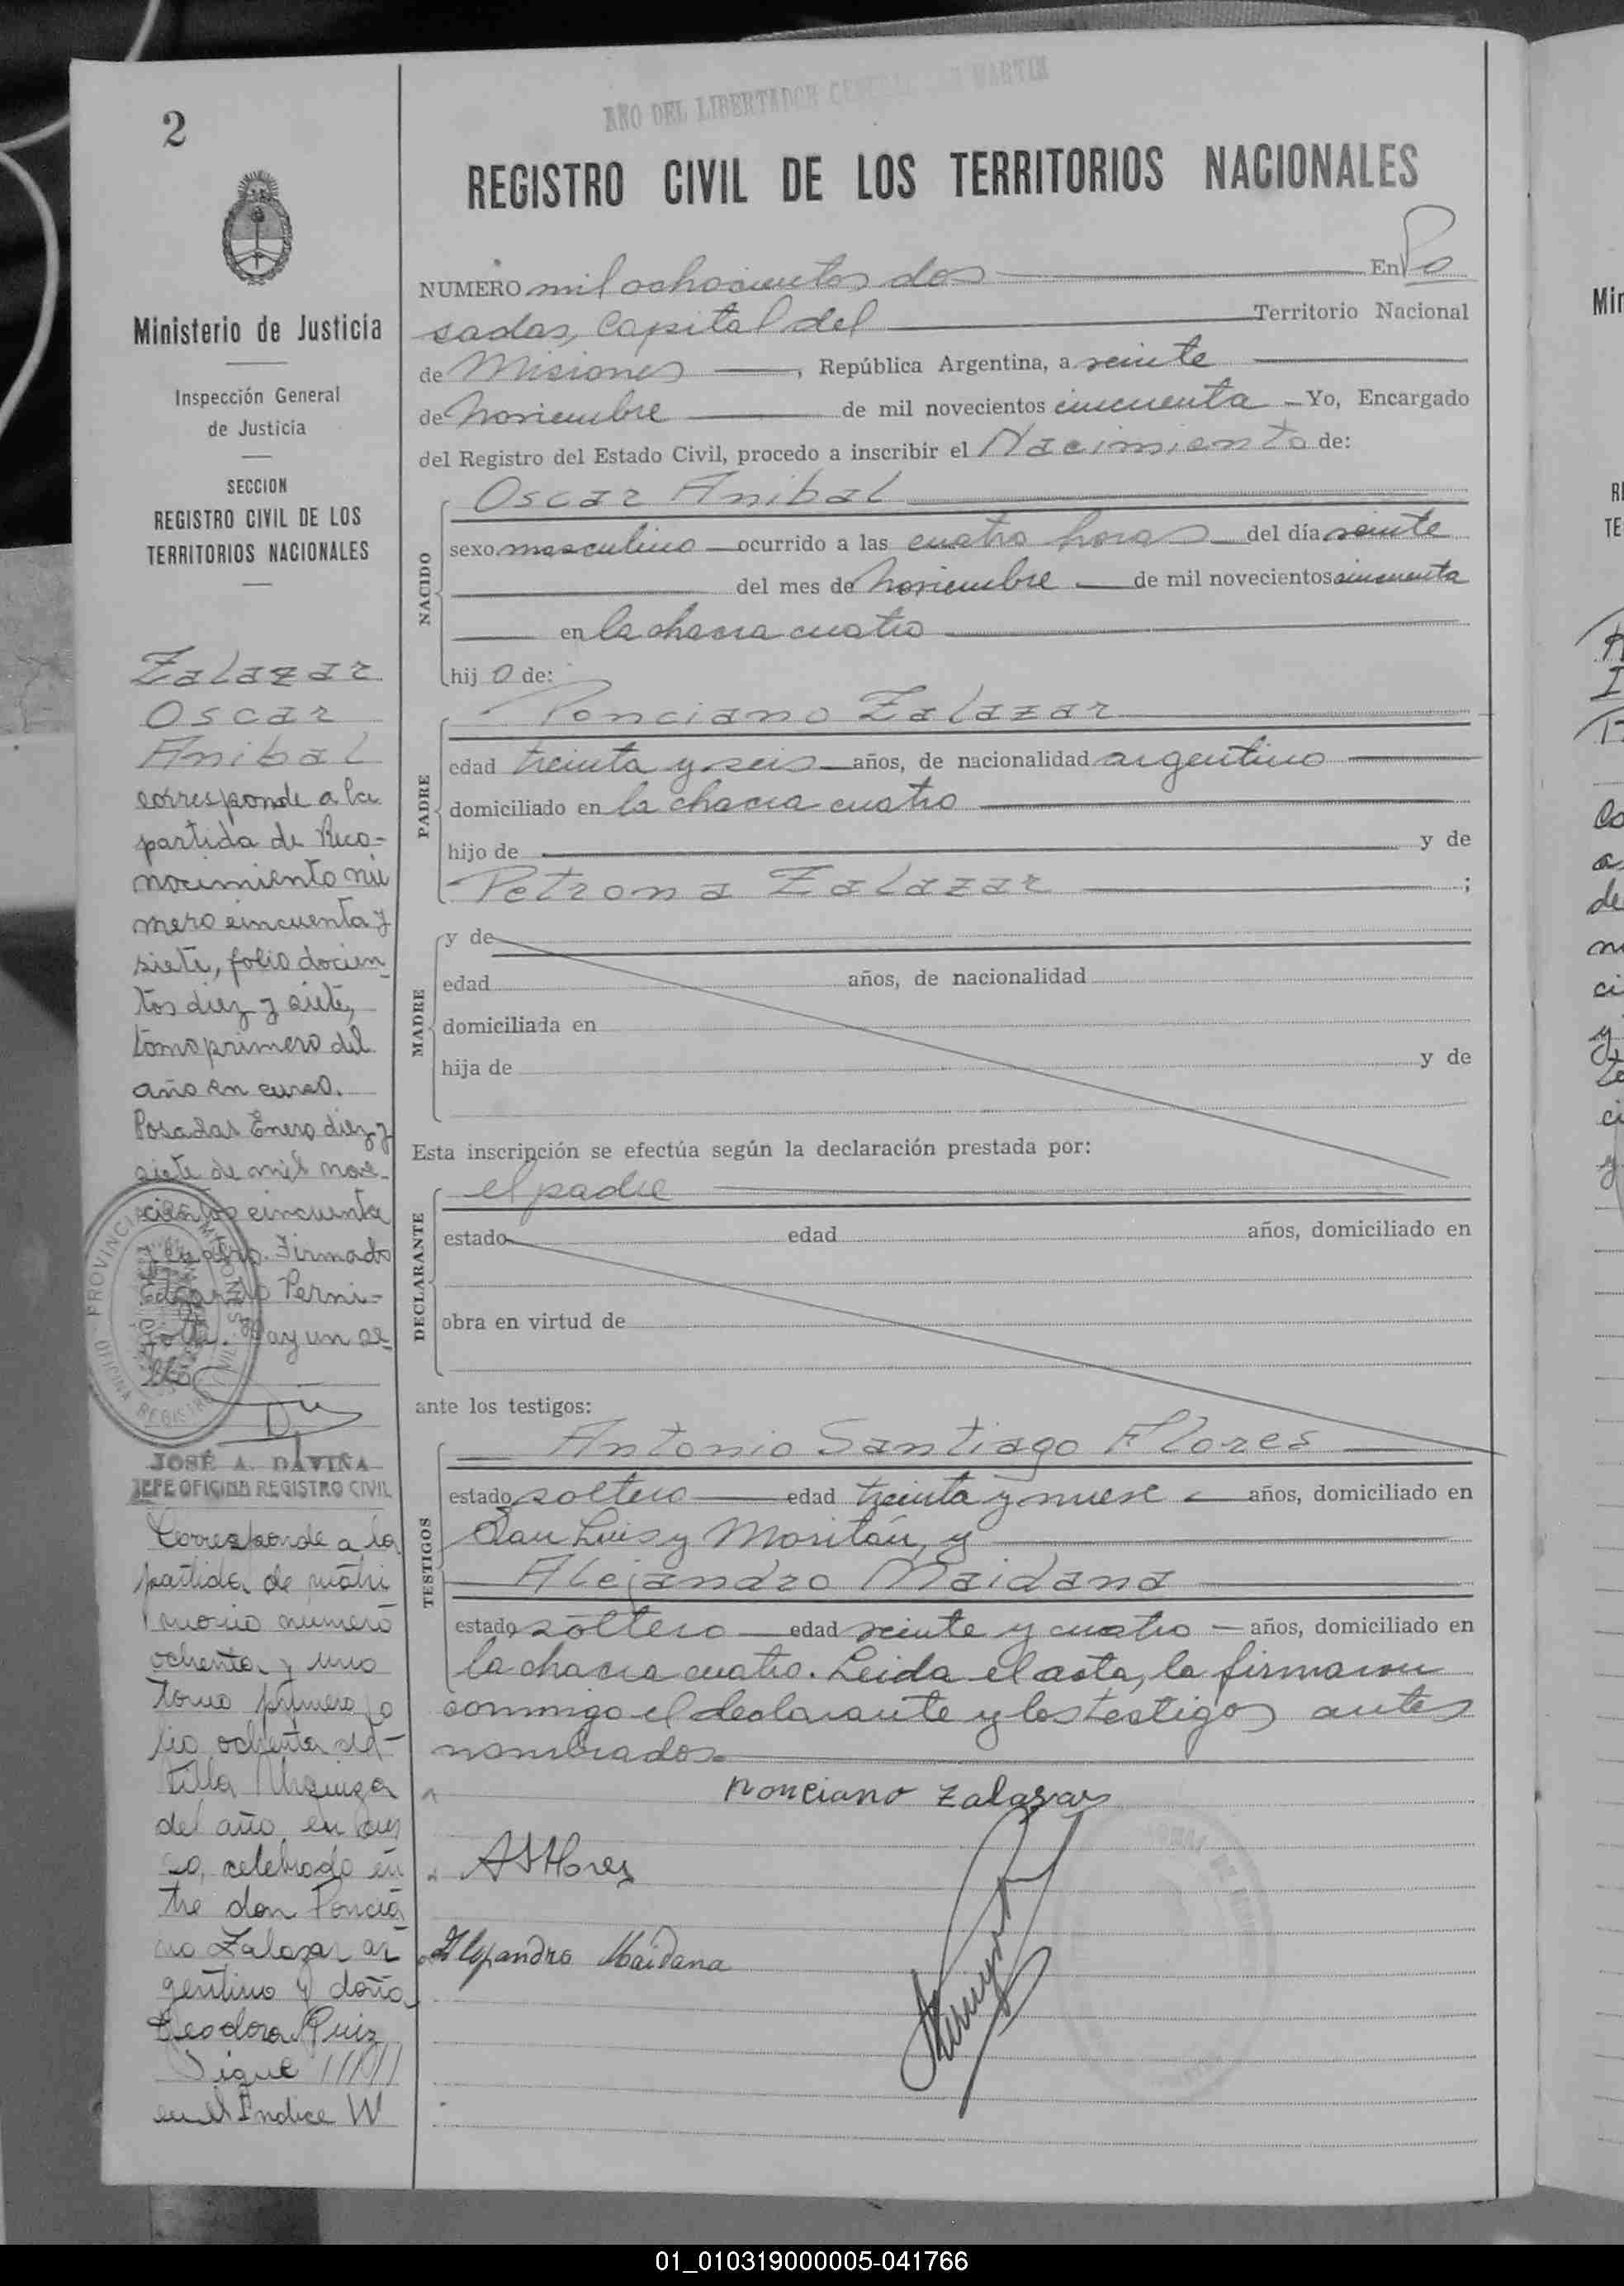 2
AÑO DEL LIBERTADOR GENERAL SAN MARTIN
REGISTRO CIVIL DE LOS TERRITORIOS NACIONALES
Ministerio de Justicia
Inspección General
de Justicia
SECCION
REGISTRO CIVIL DE LOS
TERRITORIOS NACIONALES
Zalazar
Oscar
Anibal
corresponde a la
partida de Reco-
nocimiento nú
mero cincuenta y
siete, folio docien
tos diez y siete,
tomo primero del
año en curso.
Posadas Enero diez y
siete de mil nove-
cientos cincuenta
y cuatro. Firmado
Edgardo Perni-
gotti. Hay un se
llo
PROVINCIA DE MISIONES
OFICINA REGISTRO CIVIL
JOSÉ A. DAVIÑA
JEFE OFICINA REGISTRO CIVIL
Corresponde a la
partida de matri
monio numero
ochenta y uno
tomo primero fo
lio ochenta
Villa Urquiza
del año en cur
so, celebrado en
tre don Poncia
no Zalazar ar
gentino y doña
Teodora Ruiz
Sigue //////
en el Indice W
NUMERO mil ochocientos dos En Po
sadas, Capital del Territorio Nacional
de Misiones, República Argentina, a veinte
de noviembre de mil novecientos cincuenta Yo, Encargado
del Registro del Estado Civil, procedo a inscribir el Nacimiento de:
NACIDO
Oscar Anibal
sexo masculino ocurrido a las cuatro horas del día veinte
del mes de noviembre de mil novecientos cincuenta
en la chacra cuatro
hij o de:
PADRE
Ponciano Zalazar
edad treinta y seis años, de nacionalidad argentino
domiciliado en la chacra cuatro
hijo de y de
Petrona Zalazar ;
MADRE
y de
edad años, de nacionalidad
domiciliada en
hija de y de
Esta inscripción se efectúa según la declaración prestada por:
DECLARANTE
el padre
estado edad años, domiciliado en
obra en virtud de
ante los testigos:
TESTIGOS
Antonio Santiago Flores
estado soltero edad treinta y nueve años, domiciliado en
San Luis y Moritán, y
Alejandro Maidana
estado soltero edad veinte y cuatro años, domiciliado en
la chacra cuatro. Leida el acta, la firmaron
conmigo el declarante y los testigos antes
nombrados.
Ponciano Zalazar
ASFlores
Alejandro Maidana
Min
01_010319000005-041766